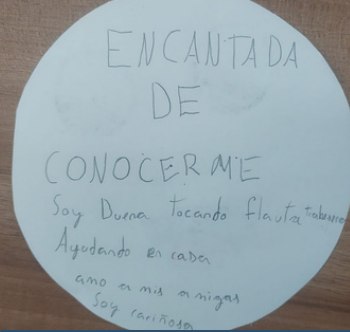 ENCANTADA
DE
CONOCERME
Soy Buena tocando flauta
Ayudando en cada
amo a mis amigas
Soy cariñosa